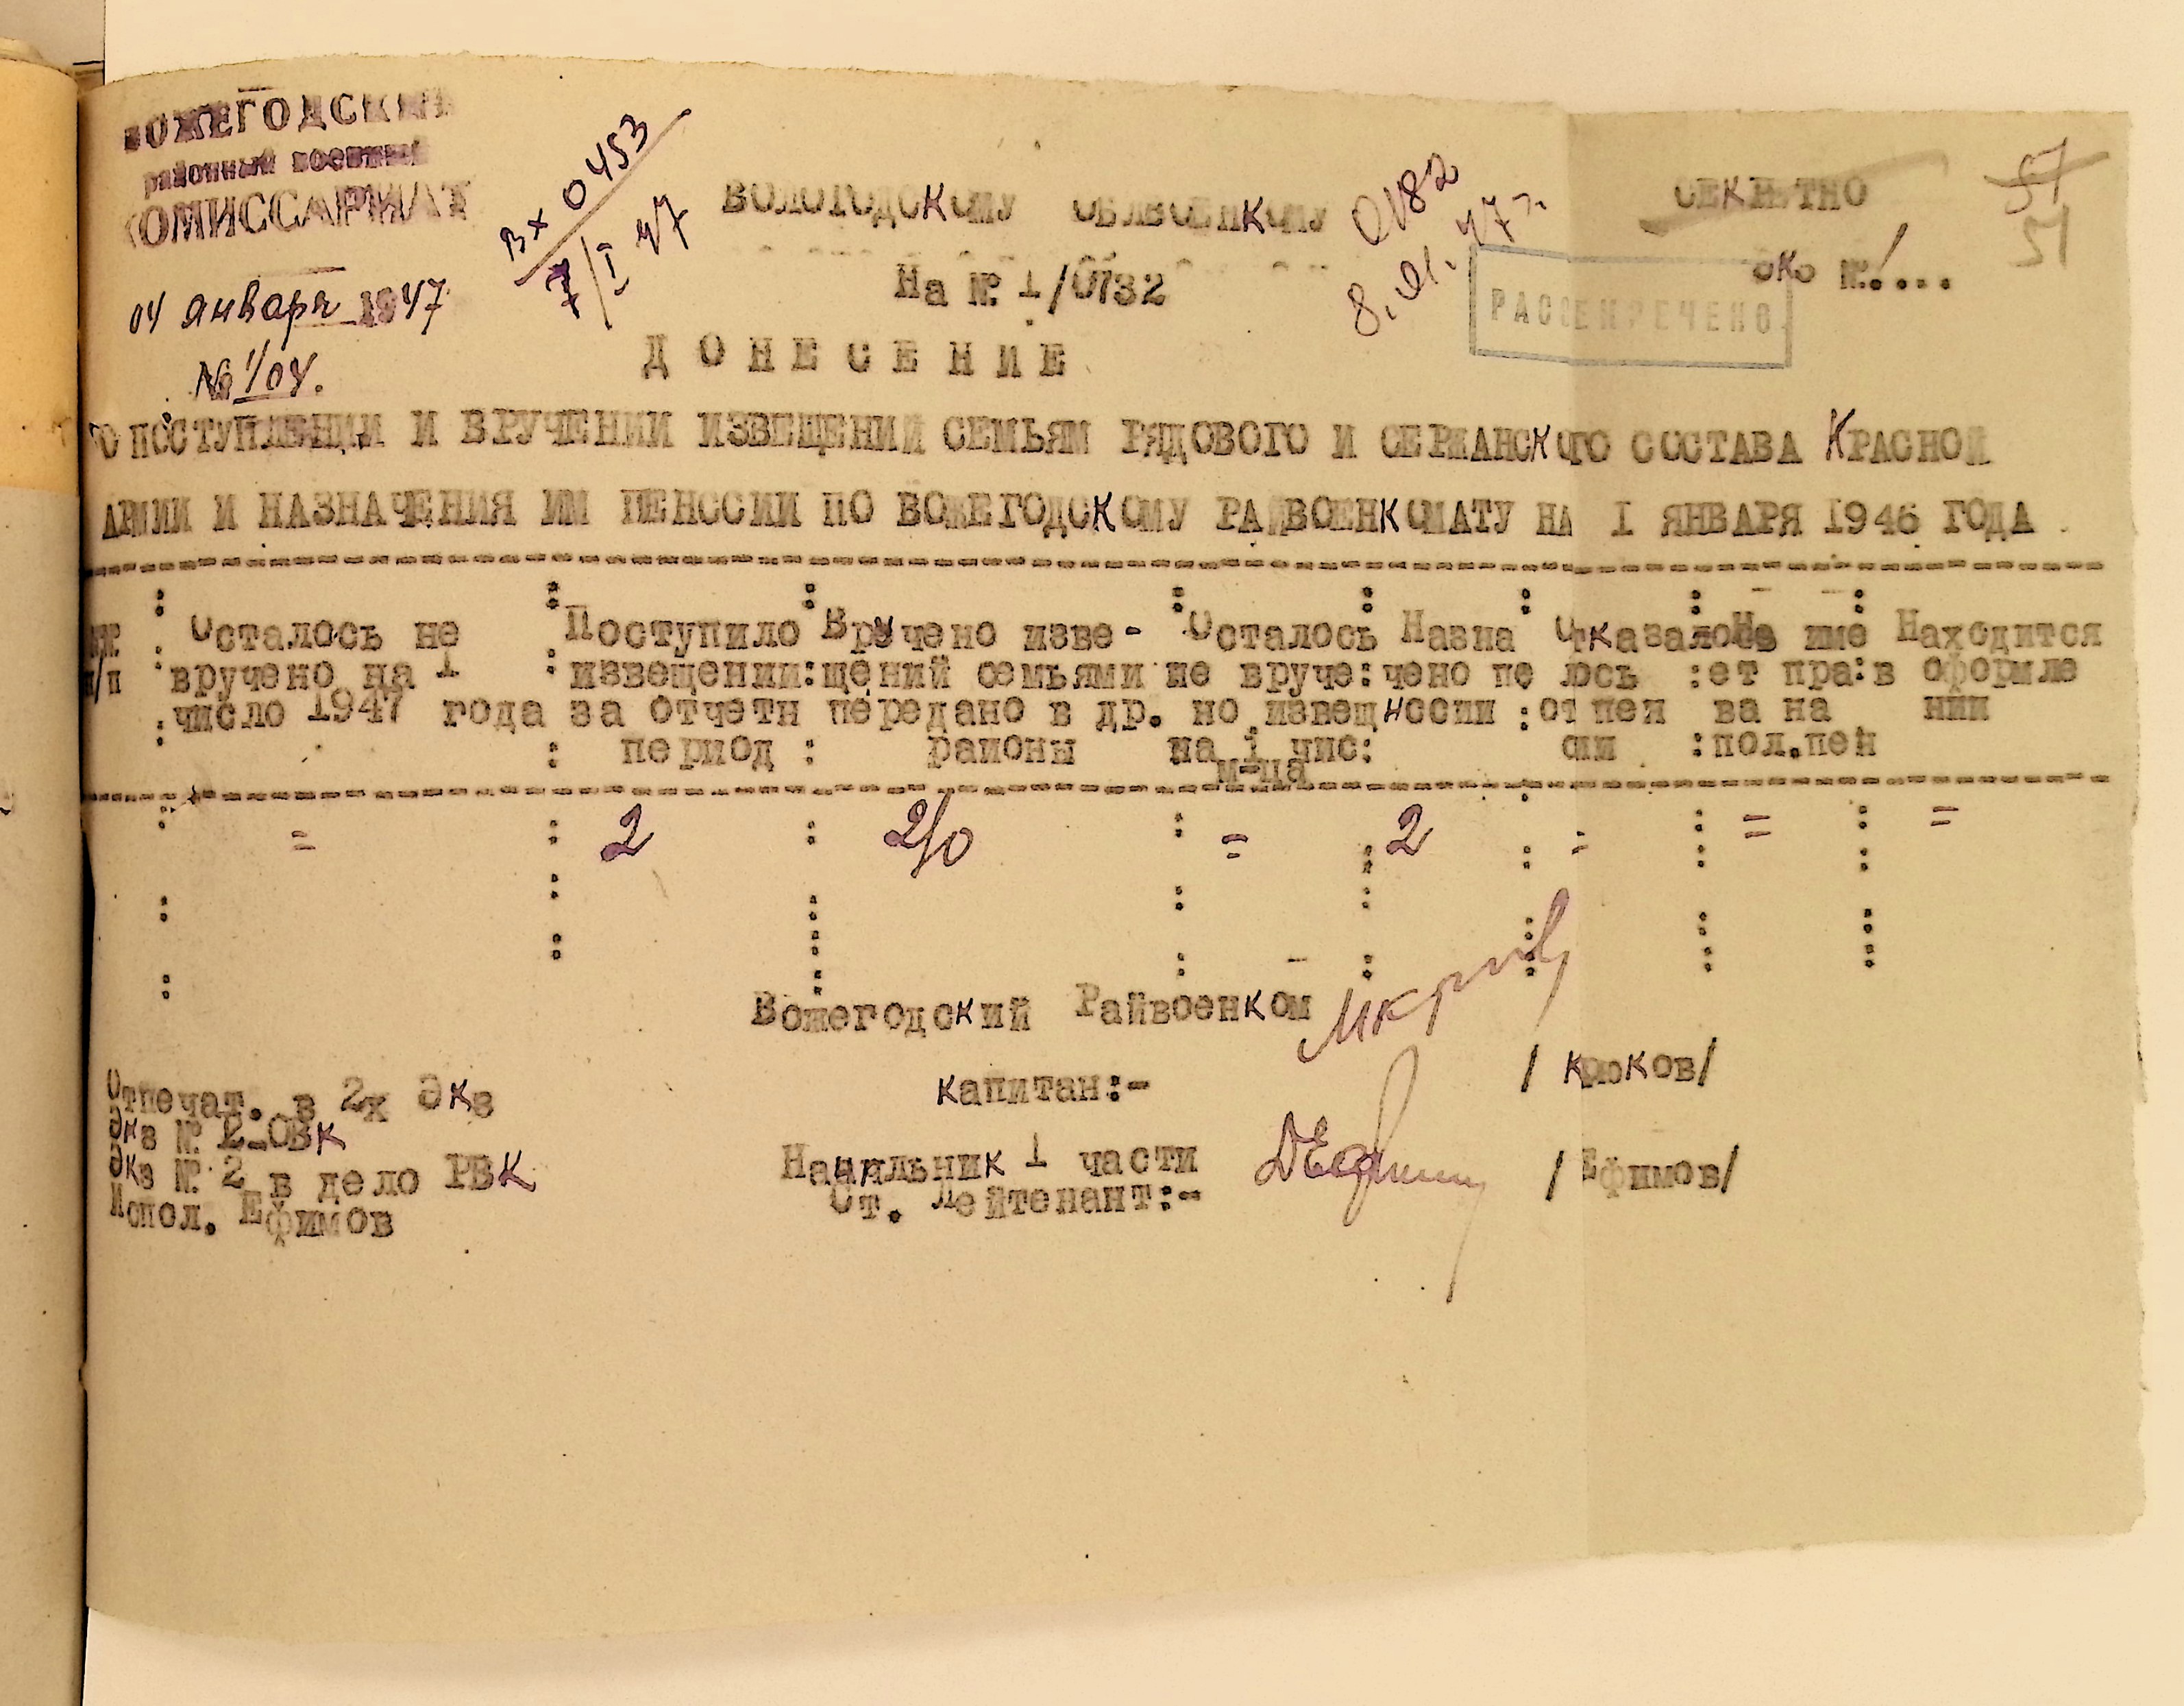 ВОЖЕГОДСКИЙ
районный военный
КОМИССАРИАТ
04 января 1947
№ 1/04.
Вх 0453
7/I 47
ВОЛОГОДСКОМУ ОБЛВОЕНКОМУ
На № 1/0732
0182
8.01.47 г.
СЕКРЕТНО
экз №1...
РАССЕКРЕЧЕНО
57
51
ДОНЕСЕНИЕ
О ПОСТУПЛЕНИИ И ВРУЧЕНИИ ИЗВЕЩЕНИЙ СЕМЬЯМ РЯДОВОГО И СЕРЖАНСКОГО СОСТАВА КРАСНОЙ
АРМИИ И НАЗНАЧЕНИЯ ИМ ПЕНССИИ ПО ВОЖЕГОДСКОМУ РАЙВОЕНКОМАТУ НА I ЯНВАРЯ 1946 ГОДА.
: : : : : : : :
: Осталось не Поступило Вручено изве- Осталось Назна Отказало Не име Находится
п/п вручено на 1 : извещении: щений семьями не вруче: чено пе ись : ет пра: в оформле
: число 1947 года за отчетн передано в др. но извещ нссии : от пен ва на нии
: : период : районы на 1 чис: сии : пол.пен
м-ца
: = : 2 : 2/0 : = : 2 : = : = : =
Вожегодский Райвоенком
капитан:- / Крюков/
Начальник 1 части
Ст. Лейтенант:- / Ефимов/
Отпечат. в 2х Экз
Экз № 2-ОВК
Экз № 2 в дело РВК
Испол. Ефимов